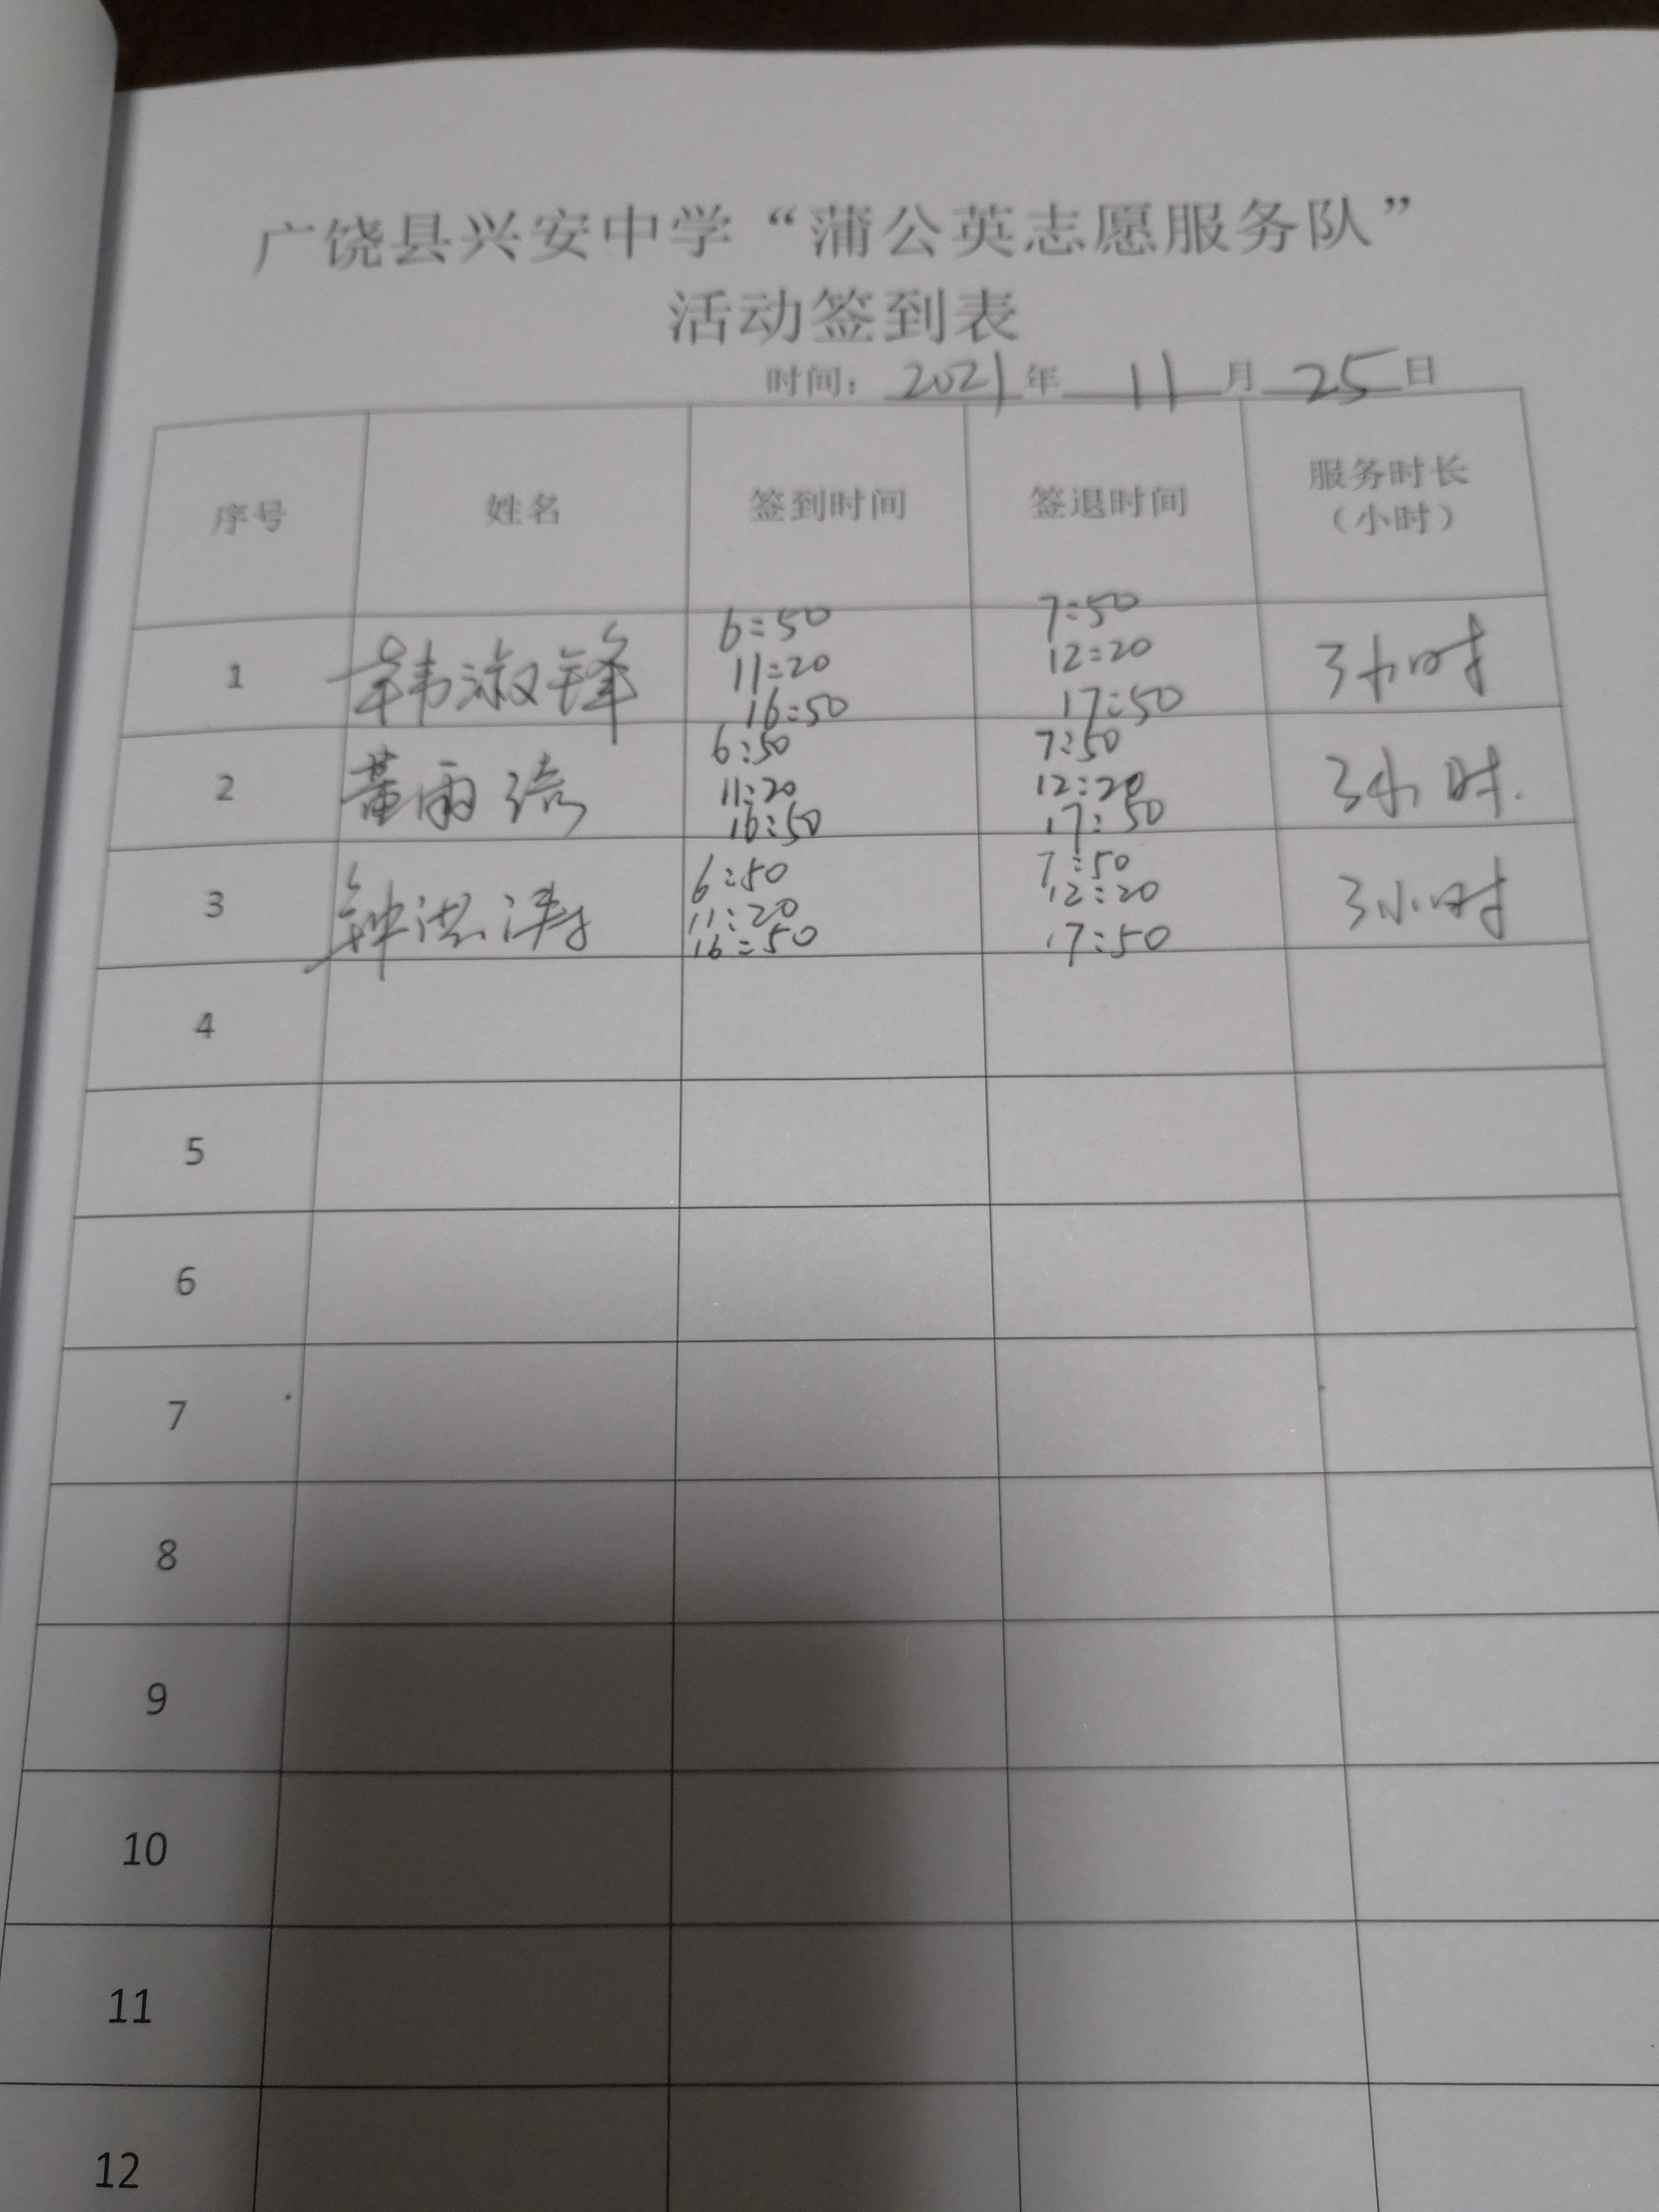 广饶县兴安中学“蒲公英志愿服务队”
活动签到表
时间：2021年11月25日
序号 姓名 签到时间 签退时间 服务时长（小时）
1 韩淑锋 6:50 7:50 3小时
11:20 12:20
16:50 17:50
2 董雨 6:50 7:50 3小时.
11:20 12:20
16:50 17:50
3 钟洪涛 6:50 7:50 3小时
11:20 12:20
16:50 17:50
4
5
6
7
8
9
10
11
12